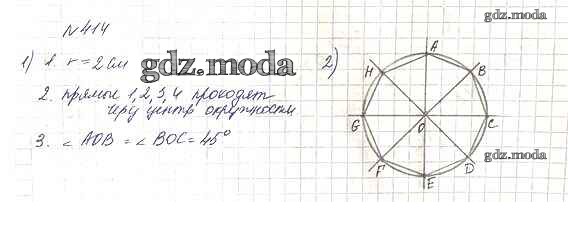 N 414
gdz.moda
1) 1. r = 2 см
gdz.moda
2)
2. прямые 1, 2, 3, 4 проходят
через центр окружности
3. ∠ AOB = ∠ BOC = 45°
A
H
B
G
O
C
gdz.moda
F
D
E